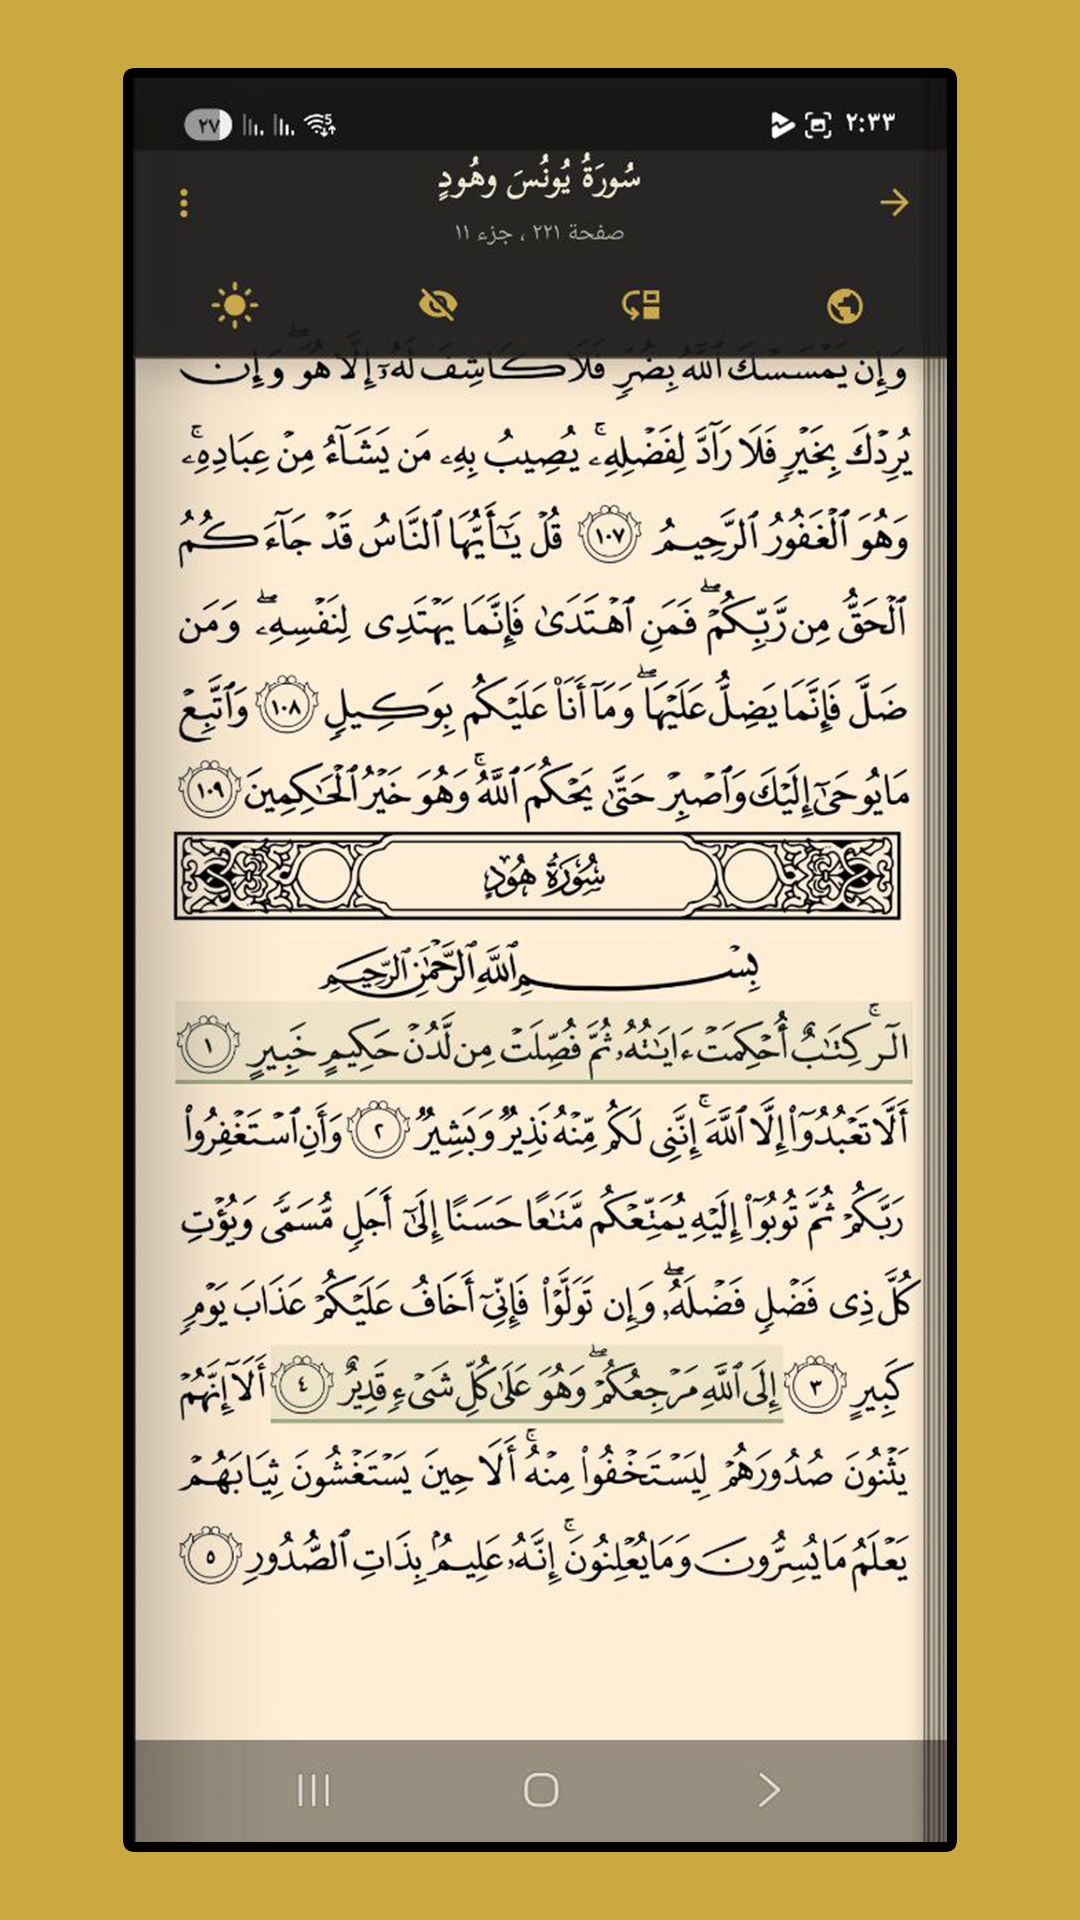 ٢٧
٢:٣٣
سُورَةُ يُونُسَ وهُودٍ
صفحة ٢٢١ ، جزء ١١
وَإِن يَمْسَسْكَ ٱللَّهُ بِضُرٍّ فَلَا كَاشِفَ لَهُۥٓ إِلَّا هُوَۖ وَإِن
يُرِدْكَ بِخَيْرٍ فَلَا رَآدَّ لِفَضْلِهِۦۚ يُصِيبُ بِهِۦ مَن يَشَآءُ مِنْ عِبَادِهِۦۚ
وَهُوَ ٱلْغَفُورُ ٱلرَّحِيمُ ١٠٧ قُلْ يَـٰٓأَيُّهَا ٱلنَّاسُ قَدْ جَآءَكُمُ
ٱلْحَقُّ مِن رَّبِّكُمْۖ فَمَنِ ٱهْتَدَىٰ فَإِنَّمَا يَهْتَدِى لِنَفْسِهِۦۖ وَمَن
ضَلَّ فَإِنَّمَا يَضِلُّ عَلَيْهَاۖ وَمَآ أَنَا۠ عَلَيْكُم بِوَكِيلٍ ١٠٨ وَٱتَّبِعْ
مَا يُوحَىٰٓ إِلَيْكَ وَٱصْبِرْ حَتَّىٰ يَحْكُمَ ٱللَّهُۚ وَهُوَ خَيْرُ ٱلْحَـٰكِمِينَ ١٠٩
سُورَةُ هُودٍ
بِسْمِ ٱللَّهِ ٱلرَّحْمَـٰنِ ٱلرَّحِيمِ
الٓرۚ كِتَـٰبٌ أُحْكِمَتْ ءَايَـٰتُهُۥ ثُمَّ فُصِّلَتْ مِن لَّدُنْ حَكِيمٍ خَبِيرٍ ١
أَلَّا تَعْبُدُوٓا۟ إِلَّا ٱللَّهَۚ إِنَّنِى لَكُم مِّنْهُ نَذِيرٌ وَبَشِيرٌ ٢ وَأَنِ ٱسْتَغْفِرُوا۟
رَبَّكُمْ ثُمَّ تُوبُوٓا۟ إِلَيْهِ يُمَتِّعْكُم مَّتَـٰعًا حَسَنًا إِلَىٰٓ أَجَلٍ مُّسَمًّى وَيُؤْتِ
كُلَّ ذِى فَضْلٍ فَضْلَهُۥۖ وَإِن تَوَلَّوْا۟ فَإِنِّىٓ أَخَافُ عَلَيْكُمْ عَذَابَ يَوْمٍ
كَبِيرٍ ٣ إِلَى ٱللَّهِ مَرْجِعُكُمْۖ وَهُوَ عَلَىٰ كُلِّ شَىْءٍ قَدِيرٌ ٤ أَلَآ إِنَّهُمْ
يَثْنُونَ صُدُورَهُمْ لِيَسْتَخْفُوا۟ مِنْهُۚ أَلَا حِينَ يَسْتَغْشُونَ ثِيَابَهُمْ
يَعْلَمُ مَا يُسِرُّونَ وَمَا يُعْلِنُونَۚ إِنَّهُۥ عَلِيمٌۢ بِذَاتِ ٱلصُّدُورِ ٥